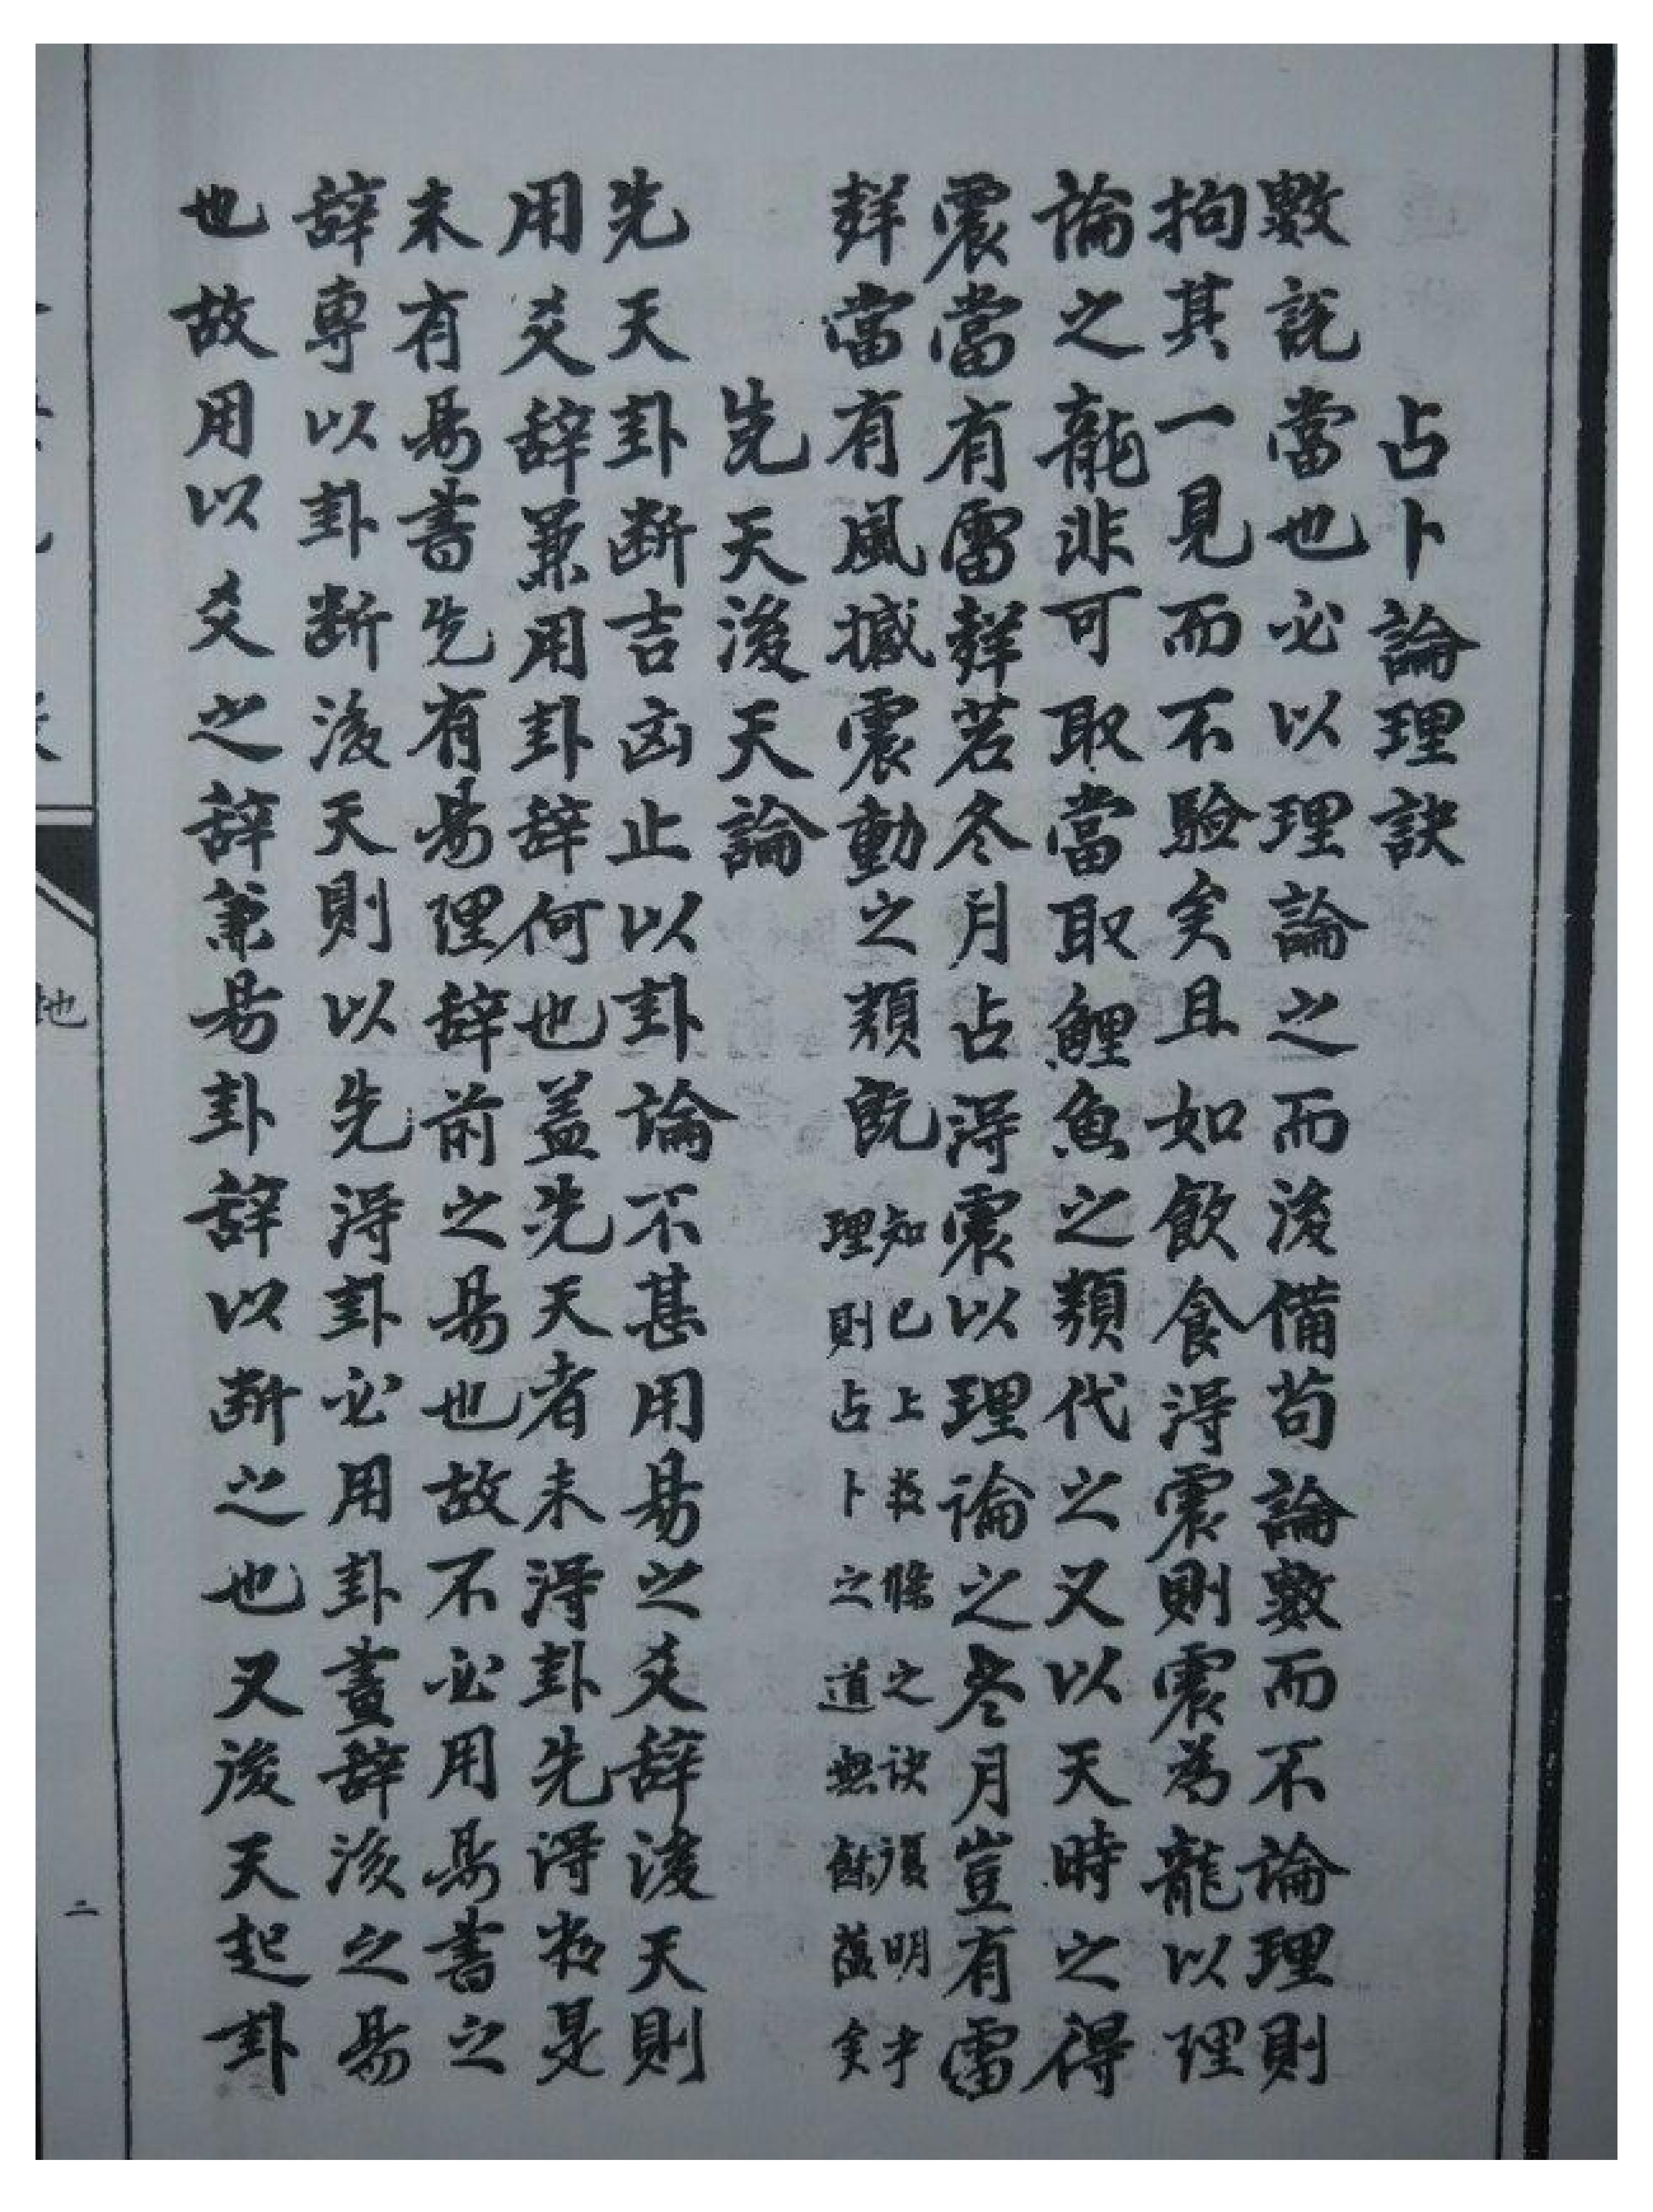 占卜論理訣
數說當也必以理論之而後備苟論數而不論理則
拘其一見而不验矣且如飲食得震則震為龍以理
論之龍非可取當取鯉魚之類代之又以天時之得
震當有雷聲若冬月占得震以理論之冬月豈有雷
聲當有風撼震動之類既
知已上数條之訣復明乎
理則占卜之道無餘蘊矣
先天後天論
先天卦断吉凶止以卦論不甚用易之爻辞後天則
用爻辞兼用卦辞何也盖先天者未得卦先得数是
未有易書先有易理辞前之易也故不必用易書之
辞專以卦断後天則以先得卦必用卦畫辞後之易
也故用以爻之辞兼易卦辞以断之也又後天起卦
地
二